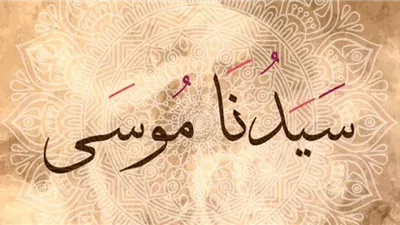 سَيِدُنَا مُوسَى